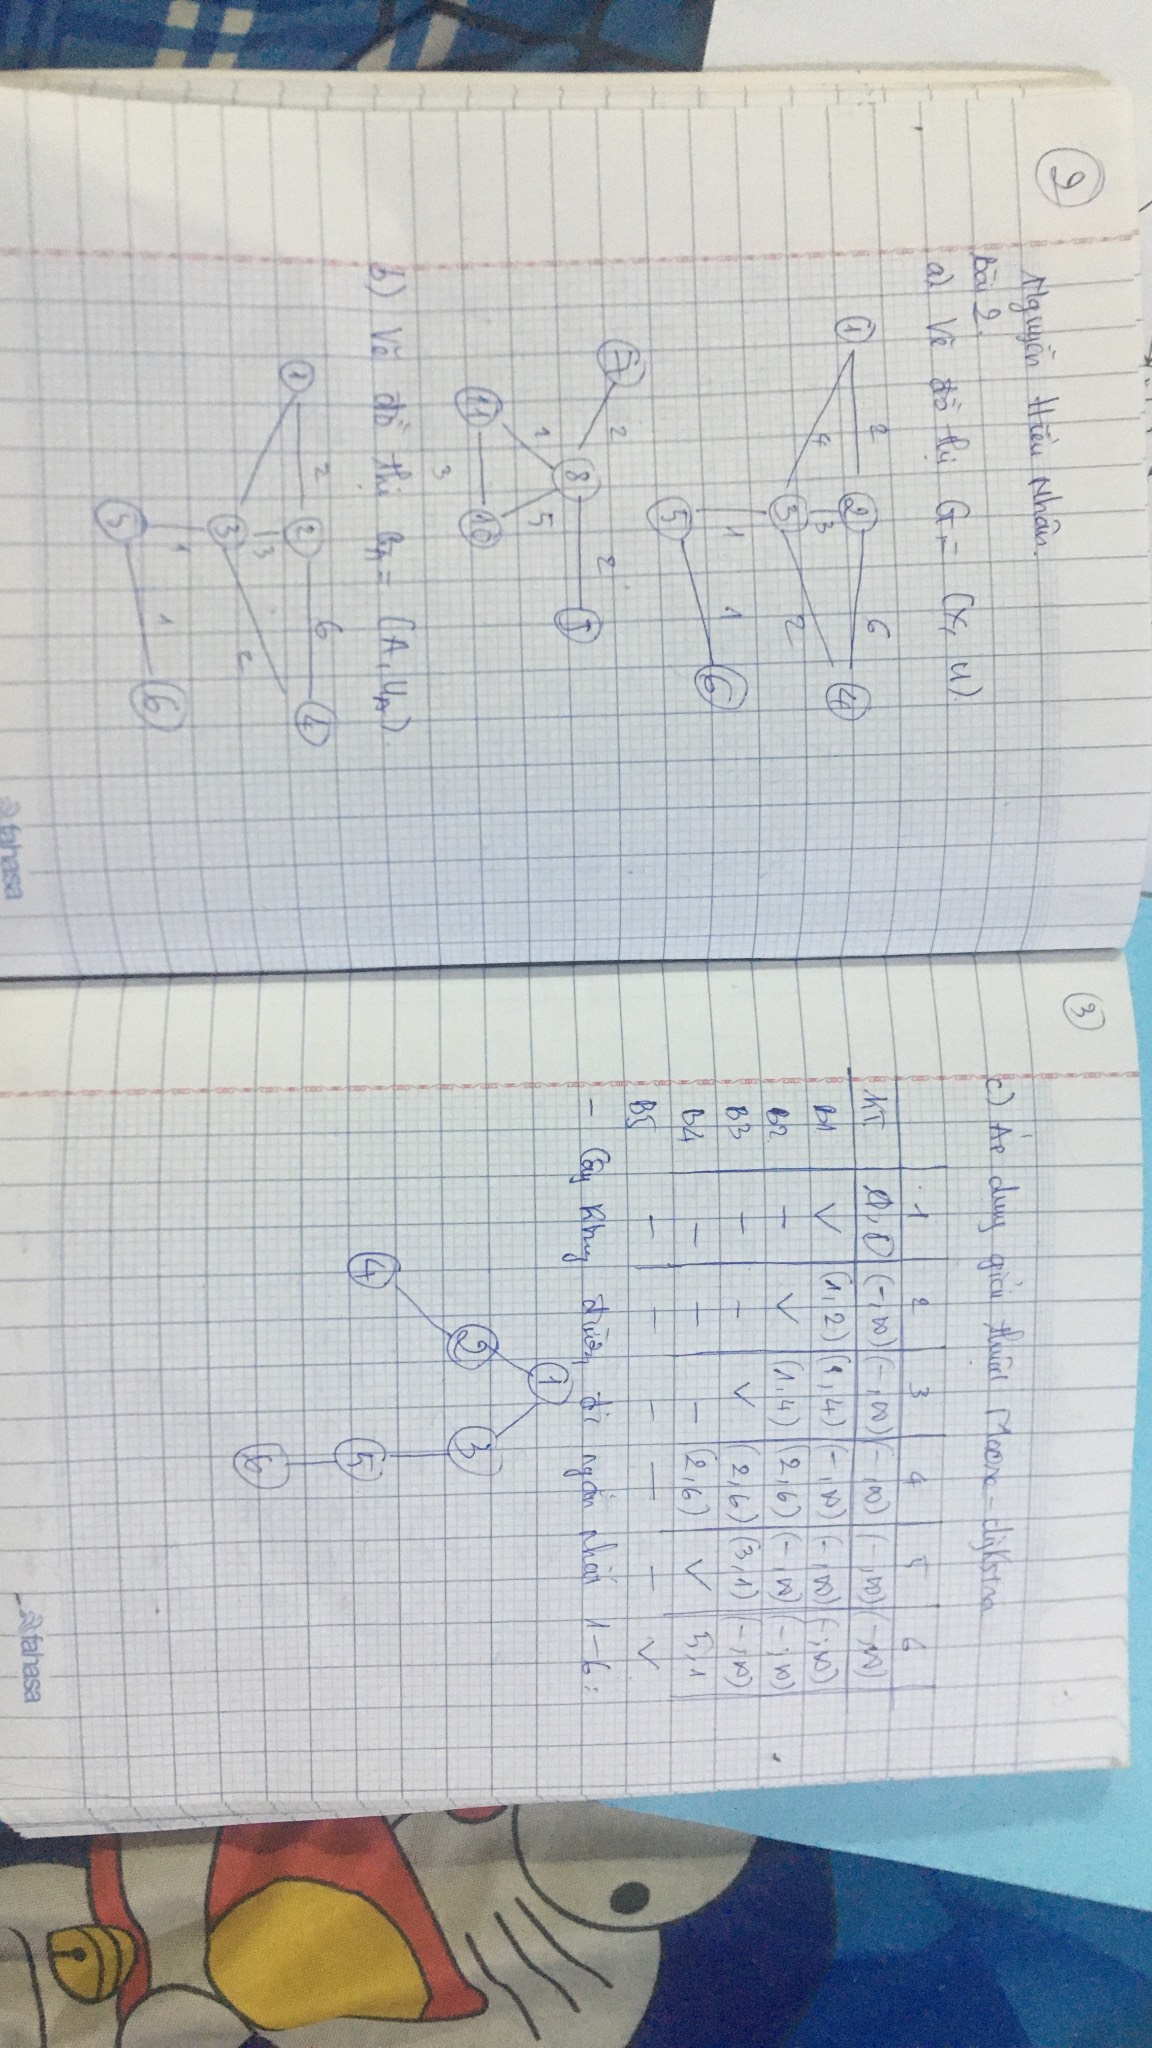 2
Nguyễn Hiếu Nhân.
Bài 2.
a) Vẽ đồ thị G = (X, U).
1 2 2 6 4
4 3 3 2
1
5 1 6
7 2 8 2 9
1 5
11 3 10
b) Vẽ đồ thị GA = (A, UA).
1 2 2 6 4
3 3 2
1
5 1 6
fahasa
3
c) Áp dụng giải thuật Moore - dijkstra
1 2 3 4 5 6
KT 0,0 (-,∞) (-,∞) (-,∞) (-,∞) (-,∞)
B1 V (1,2) (1,4) (-,∞) (-,∞) (-,∞)
B2 - V (1,4) (2,6) (-,∞) (-,∞)
B3 - - V (2,6) (3,1) (-,∞)
B4 - - - (2,6) V 5,1
B5 - - - - - V
- Cây khung đường đi ngắn nhất 1-6:
1
2 3
4 5
6
fahasa